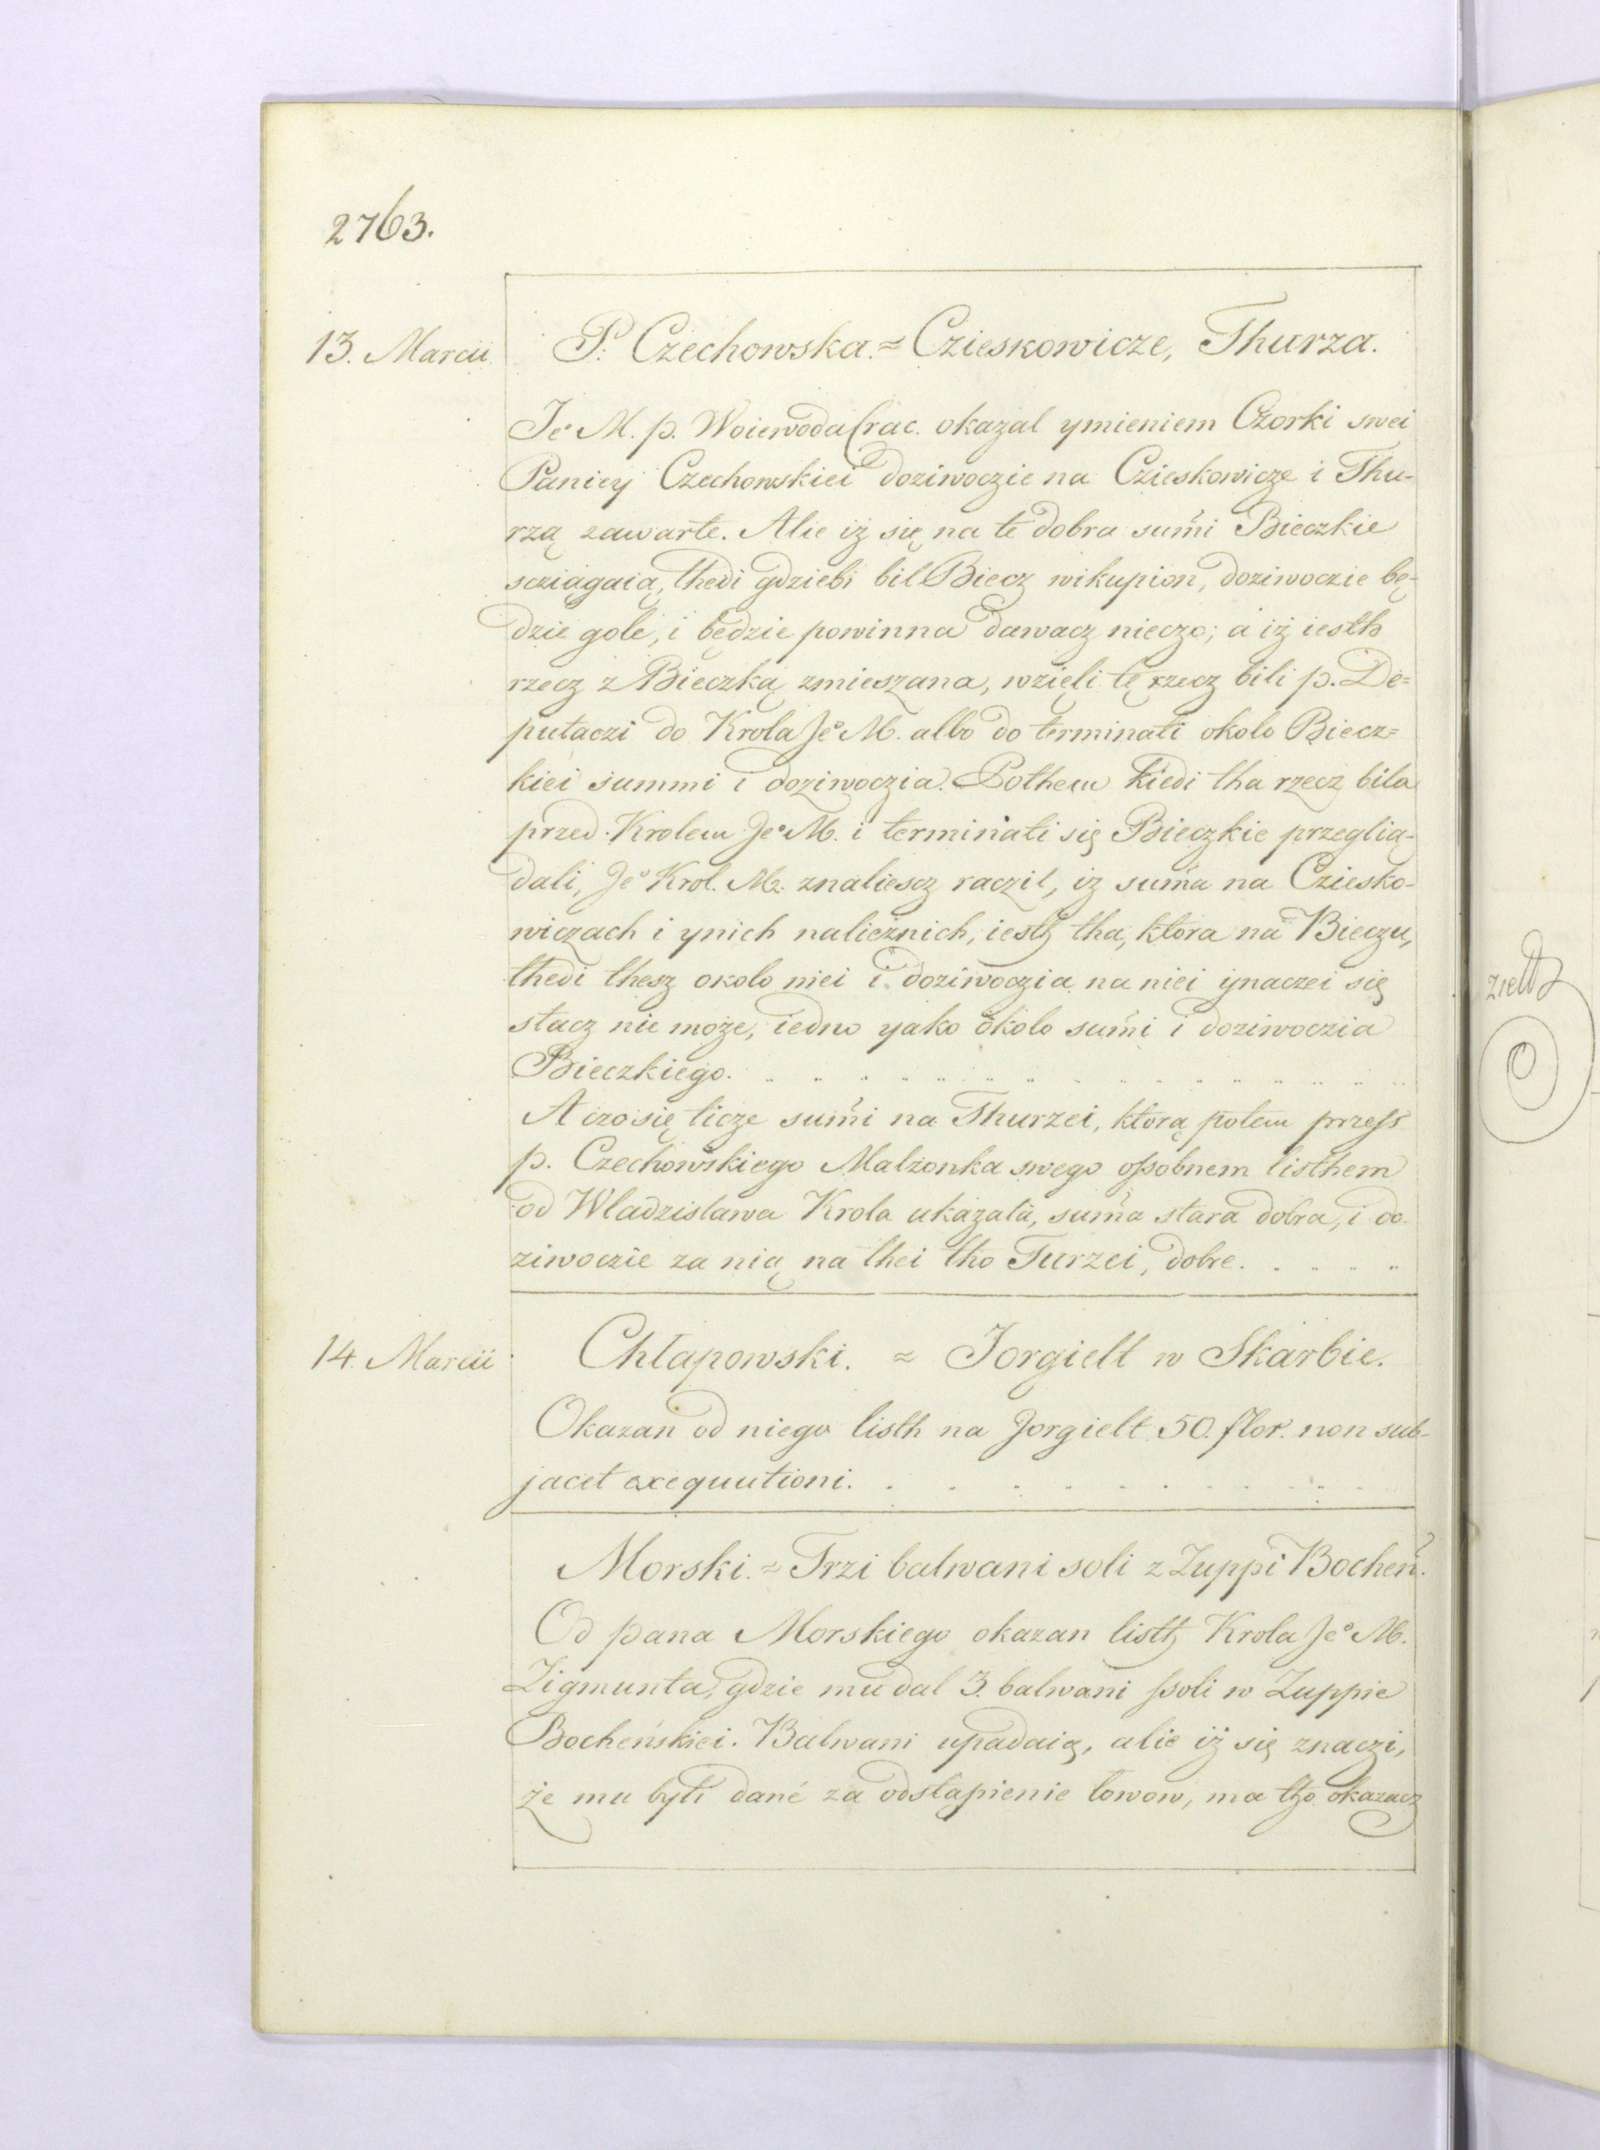 2763.
13. Marcii
P. Czechowska. ≈ Czieskowicze, Thurza.
Je° M. p. Woiewoda Crac. okazal ymieniem Czorki swei
Paniey Czechowskiei doziwoczie na Czieskowicze i Thu-
rzą zawarte. Alie iż się na te dobra sum̃i Bieczkie
scziągaią, thedi gdziebi bil Biecz wikupion, doziwoczie bę-
dzie gole, i będzie powinna dawacz nieczo; a iż iesth
rzecz z Bieczką zmieszana, wzięli tę rzecz bili p. De=
putaczi do Krola Je° M. albo do terminati okolo Biecz=
kiei summi i doziwoczia. Pothem kiedi tha rzecz bila
przed Krolem Je° M. i terminati się Bieczkie przeglią-
dali, Je° Krol. M. znaliescz raczil, iz sum̃a na Cziesko-
wiczach i ynich nalieżnich, iesth tha, ktora na Bieczu,
thedi thesz okolo niei i doziwoczia na niei ynaczei się
stacz nie może, iedno yako okolo sum̃i i doziwoczia
Bieczkiego.
A czo się ticze sum̃i na Thurzei, ktorą potem przess
p. Czechowskiego Malzonka swego ossobnem listhem
od Wladzislawa Krola ukazala, sum̃a stara dobra, i do-
ziwoczie za nią na thei tho Turzei, dobre.
14. Marcii
Chłapowski. ≈ Jorgielt w Skarbie.
Okazan od niego listh na Jorgielt 50. flor. non sub-
jacet exequutioni.
Morski. ≈ Trzi balwani soli z Zuppi Bocheń.
Od pana Morskiego okazan listh Krola Je° M.
Zigmunta, gdzie mu dal 3. balwani ssoli w Zuppie
Bocheńskiei. Balwani upadaią, alie iż się znaczi,
że mu byli dané za odstapienie lowow, ma tho okazacz